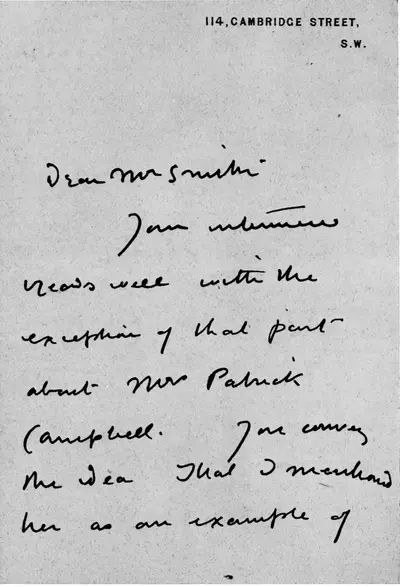 114, CAMBRIDGE STREET,
S.W.
Dear Mr Smith
Your interview
reads well with the
exception of that part
about Mrs Patrick
Campbell. You convey
the idea that I mentioned
her as an example of